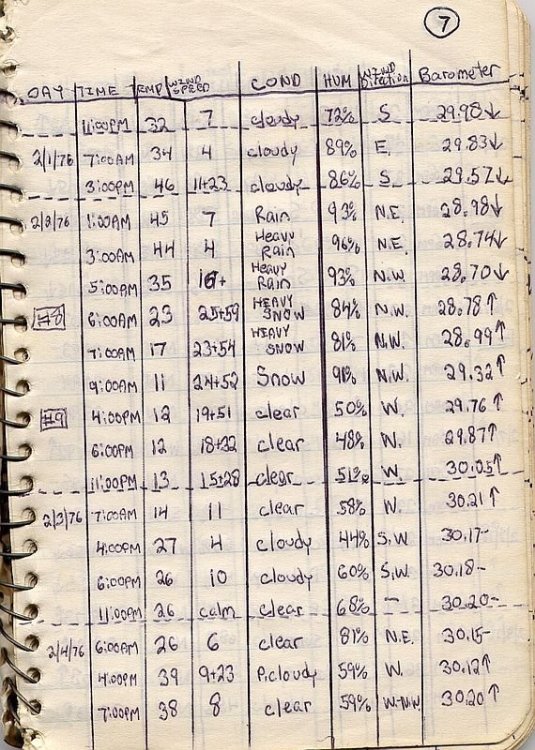 7
DAY TIME TEMP WIND SPEED COND HUM WIND Direction Barometer
11:00PM 32 7 cloudy 72% S 29.98↓
2/1/76 7:00AM 34 4 cloudy 89% E. 29.83↓
3:00PM 46 11+23 cloudy 86% S. 29.57↓
2/2/76 1:00AM 45 7 Rain 93% N.E. 28.98↓
3:00AM 44 4 Heavy Rain 96% N.E. 28.74↓
5:00AM 35 16+ Heavy Rain 93% N.W 28.70↓
#8 6:00AM 23 25+59 HEAVY SNOW 84% N.W. 28.78↑
7:00AM 17 23+54 HEAVY SNOW 81% N.W. 28.99↑
9:00AM 11 24+52 Snow 91% N.W. 29.32↑
#9 4:00PM 12 19+51 clear 50% W. 29.76↑
6:00PM 12 18+32 clear 48% W. 29.87↑
11:00PM 13 15+28 clear 51% W. 30.05↑
2/3/76 7:00AM 14 11 clear 58% W. 30.21↑
4:00PM 27 4 cloudy 44% S.W 30.17-
6:00PM 26 10 cloudy 60% S.W. 30.18-
11:00PM 26 calm clear 68% - 30.20-
2/4/76 6:00AM 26 6 clear 81% N.E. 30.15-
4:00PM 39 9+23 P.cloudy 59% W. 30.12↑
7:00PM 38 8 clear 59% W-NW 30.20↑